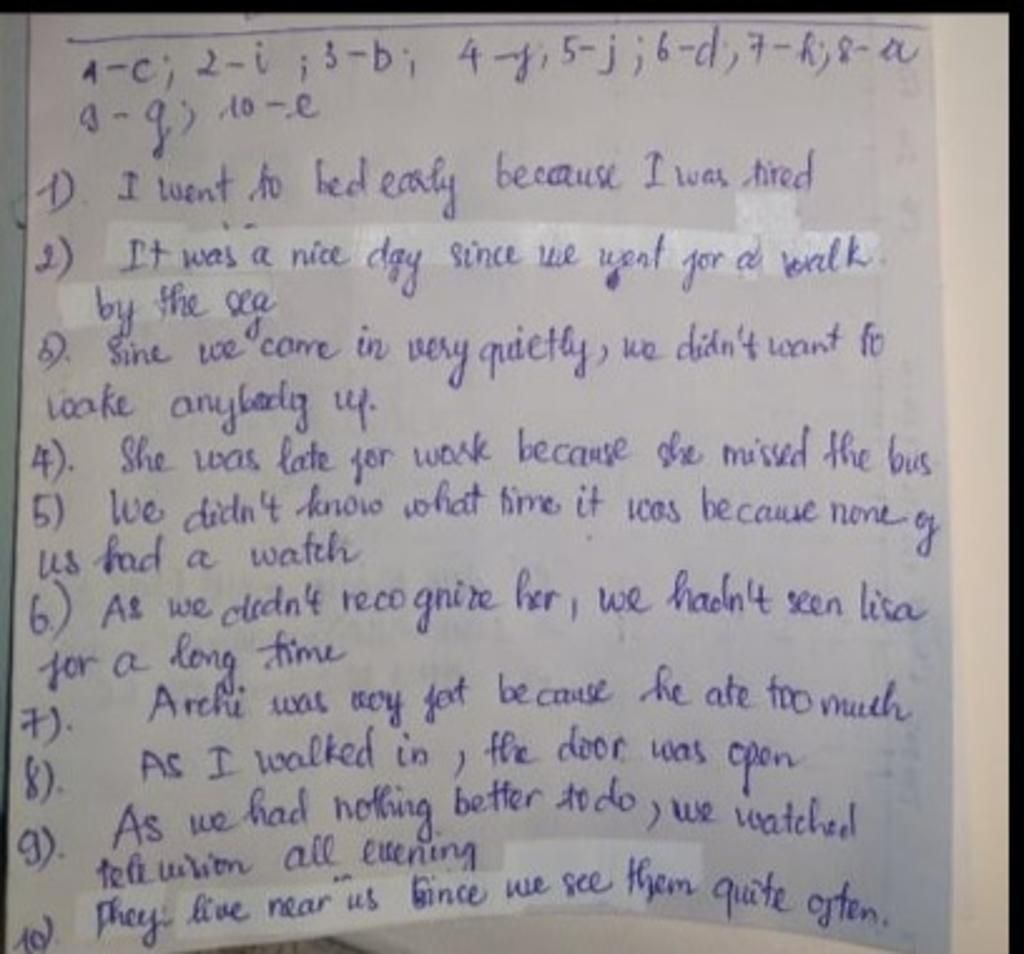 1-c; 2-i; 3-b; 4-f; 5-j; 6-d; 7-h; 8-a
9-g; 10-e
1) I went to bed early because I was tired
2) It was a nice day since we went for a walk.
by the sea
3). Sine we came in very quietly, we didn't want to
wake anybody up.
4). She was late for work because she missed the bus
5) We didn't know what time it was because none of
us had a watch
6.) As we didn't recognize her, we hadn't seen lisa
for a long time
7). Archi was very fat because he ate too much
8). As I walked in, the door was open
9). As we had nothing better to do, we watched
television all evening
10). They live near us since we see them quite often.